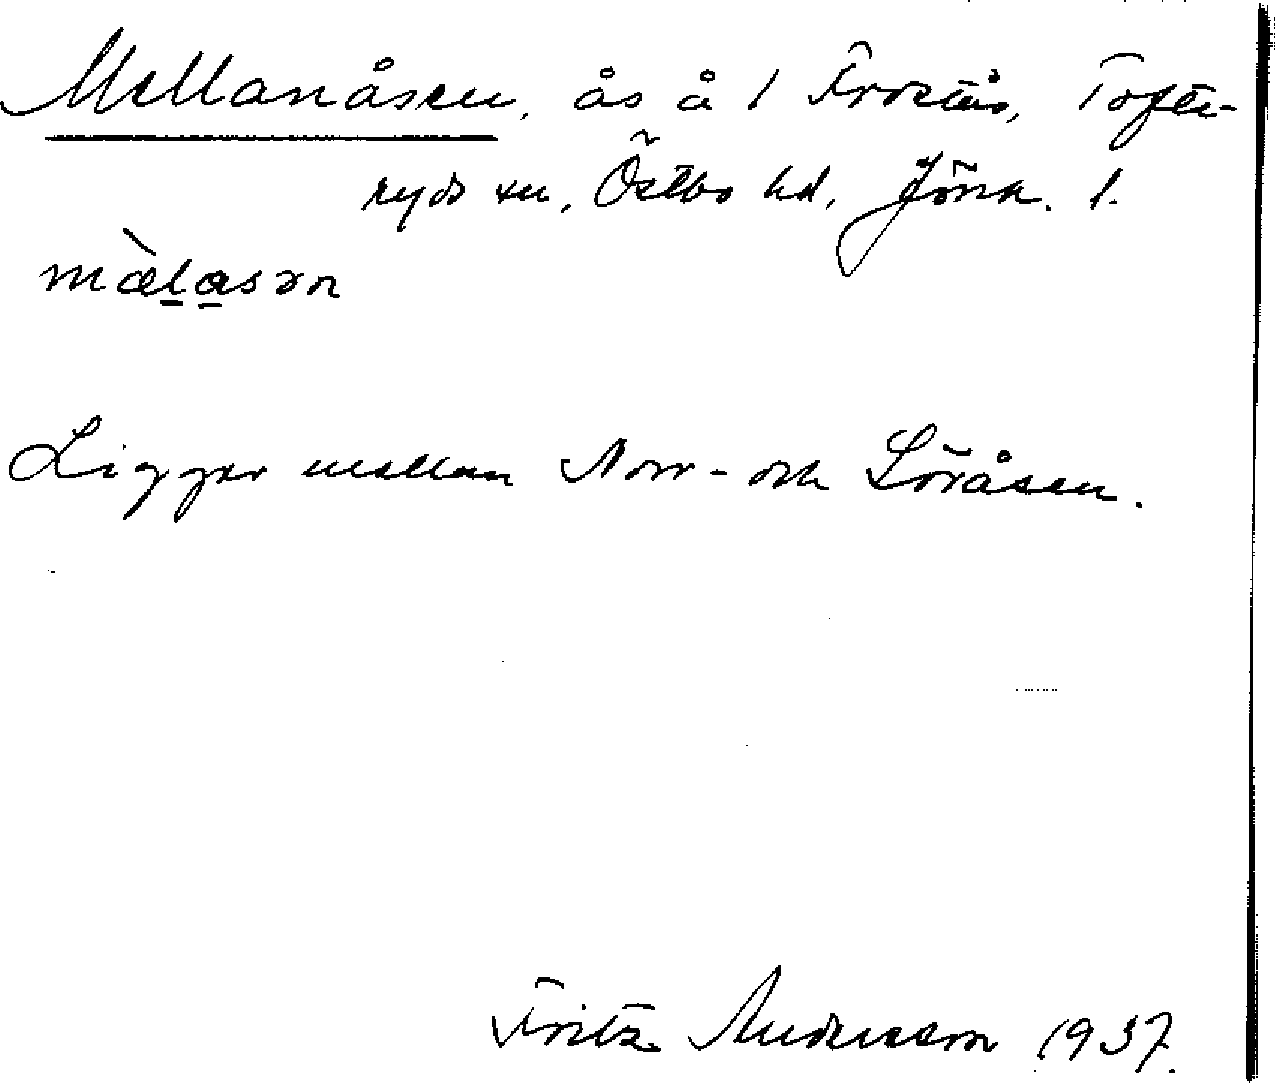 Mellanåsen, ås å 1 Frostås, Tofte-
ryds sn, Östbo hd, Jönk. l.
mæ̀l̲a̲sən
Ligger mellan Norr- och Söråsen.
Fritz Andersson 1937.